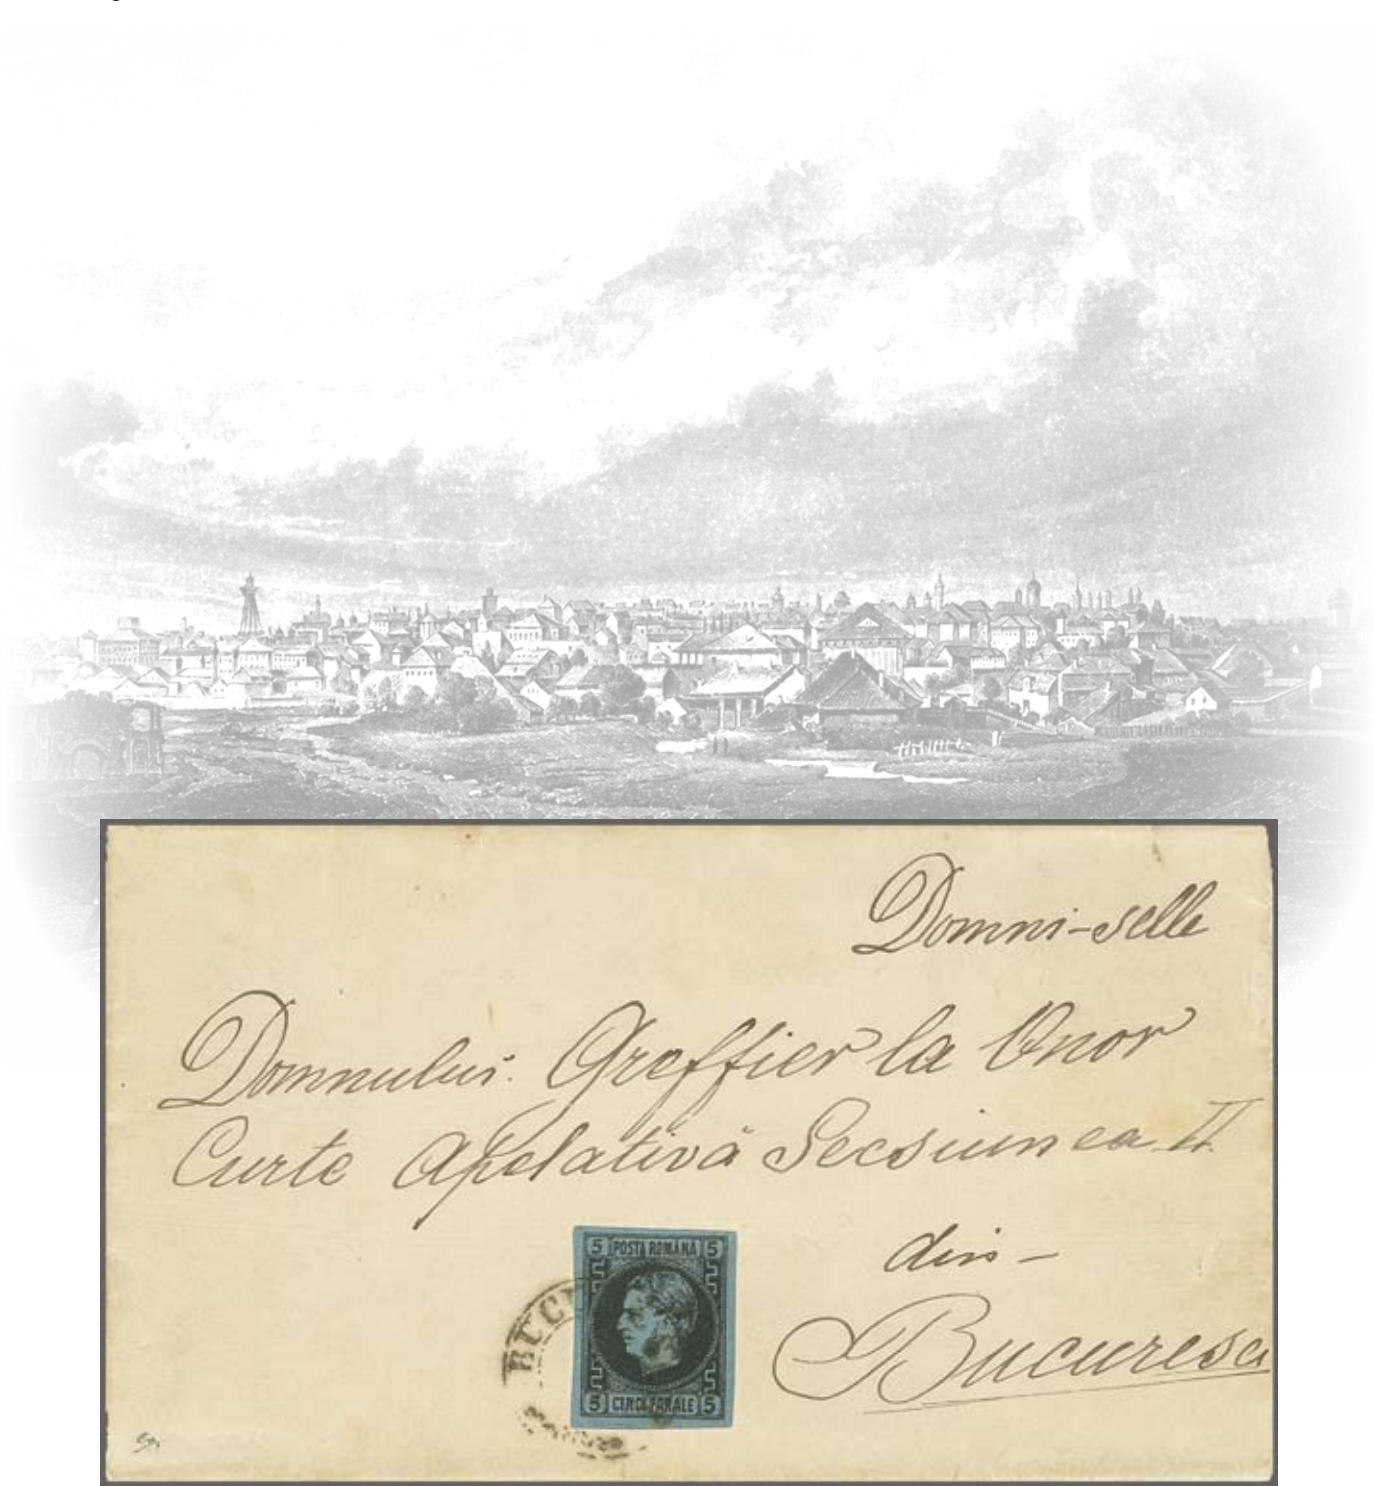 Domni-selle
Domnului Greffier la Onor
Curte Apelativă Secsiunea II
din -
Bucuresci
5 POSTA ROMANA 5
5 CINCI PARALE 5
BUCU